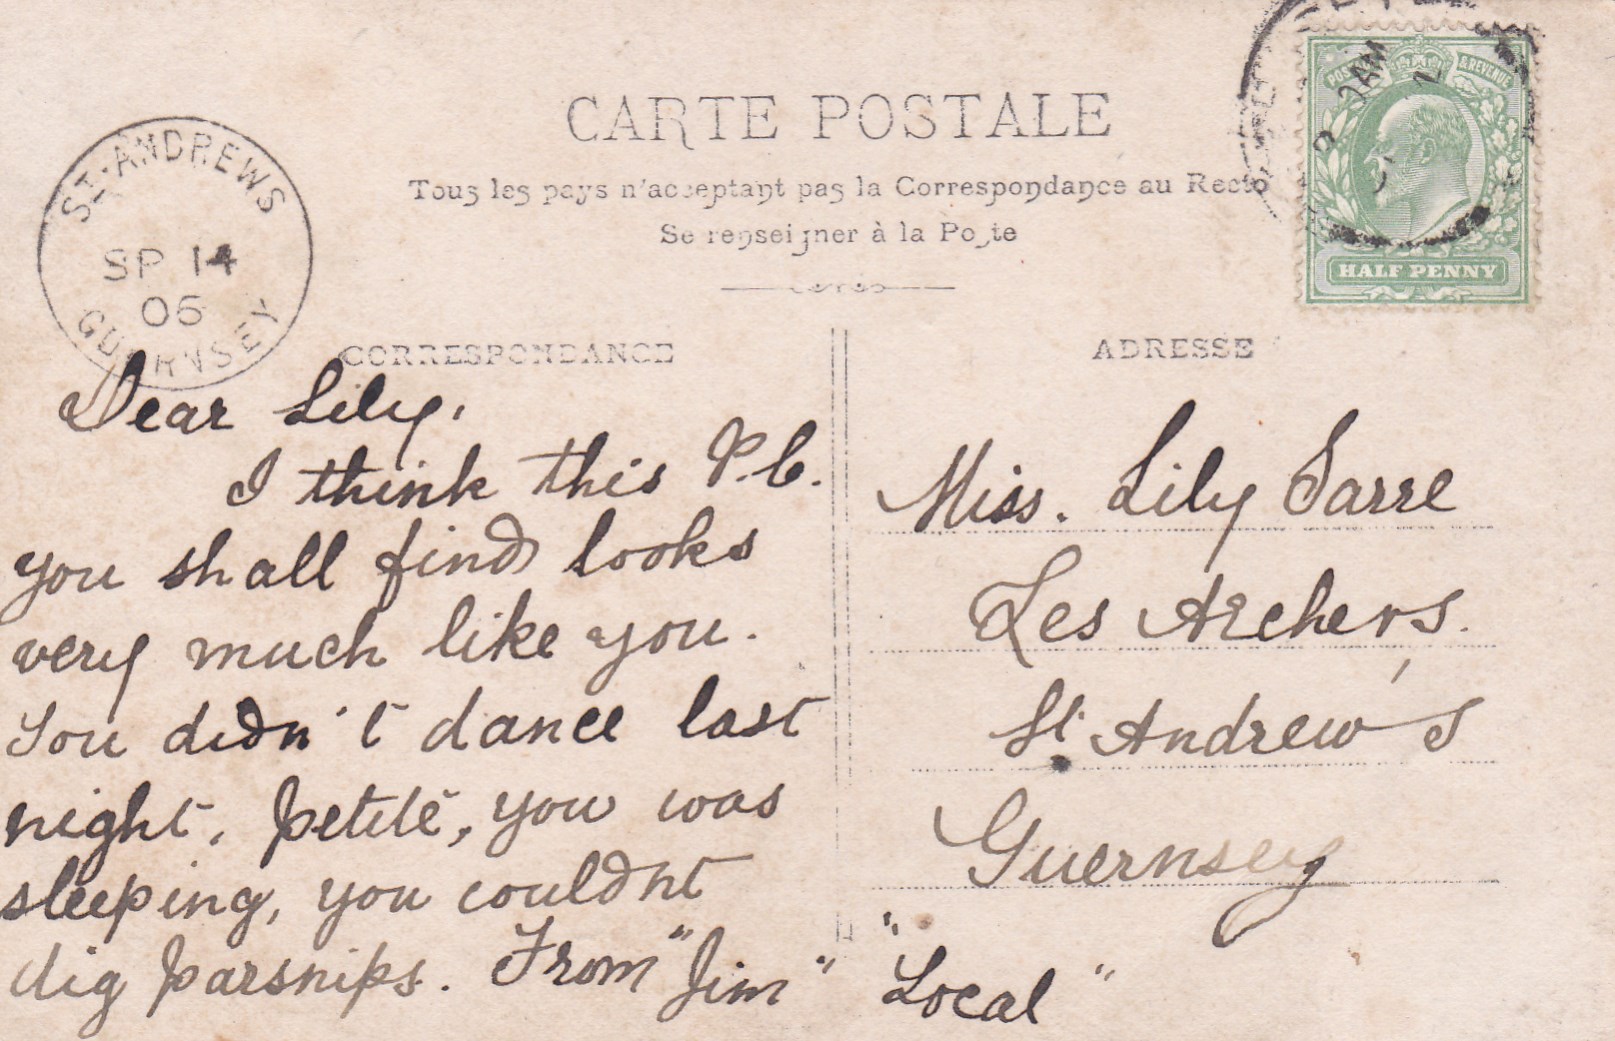 CARTE POSTALE
Tous les pays n'acceptant pas la Correspondance au Recto
Se renseigner à la Poste
POSTAGE & REVENUE
HALF PENNY
ST. ANDREWS
SP 14
06
GUERNSEY
CORRESPONDANCE
Dear Lily,
I think this P.C.
you shall find looks
very much like you.
You didn't dance last
night, petite, you was
sleeping, you couldnt
dig parsnips. From "Jim"
ADRESSE
Miss. Lily Sarre
Les Archers.
St. Andrew's
Guernsey
"Local"